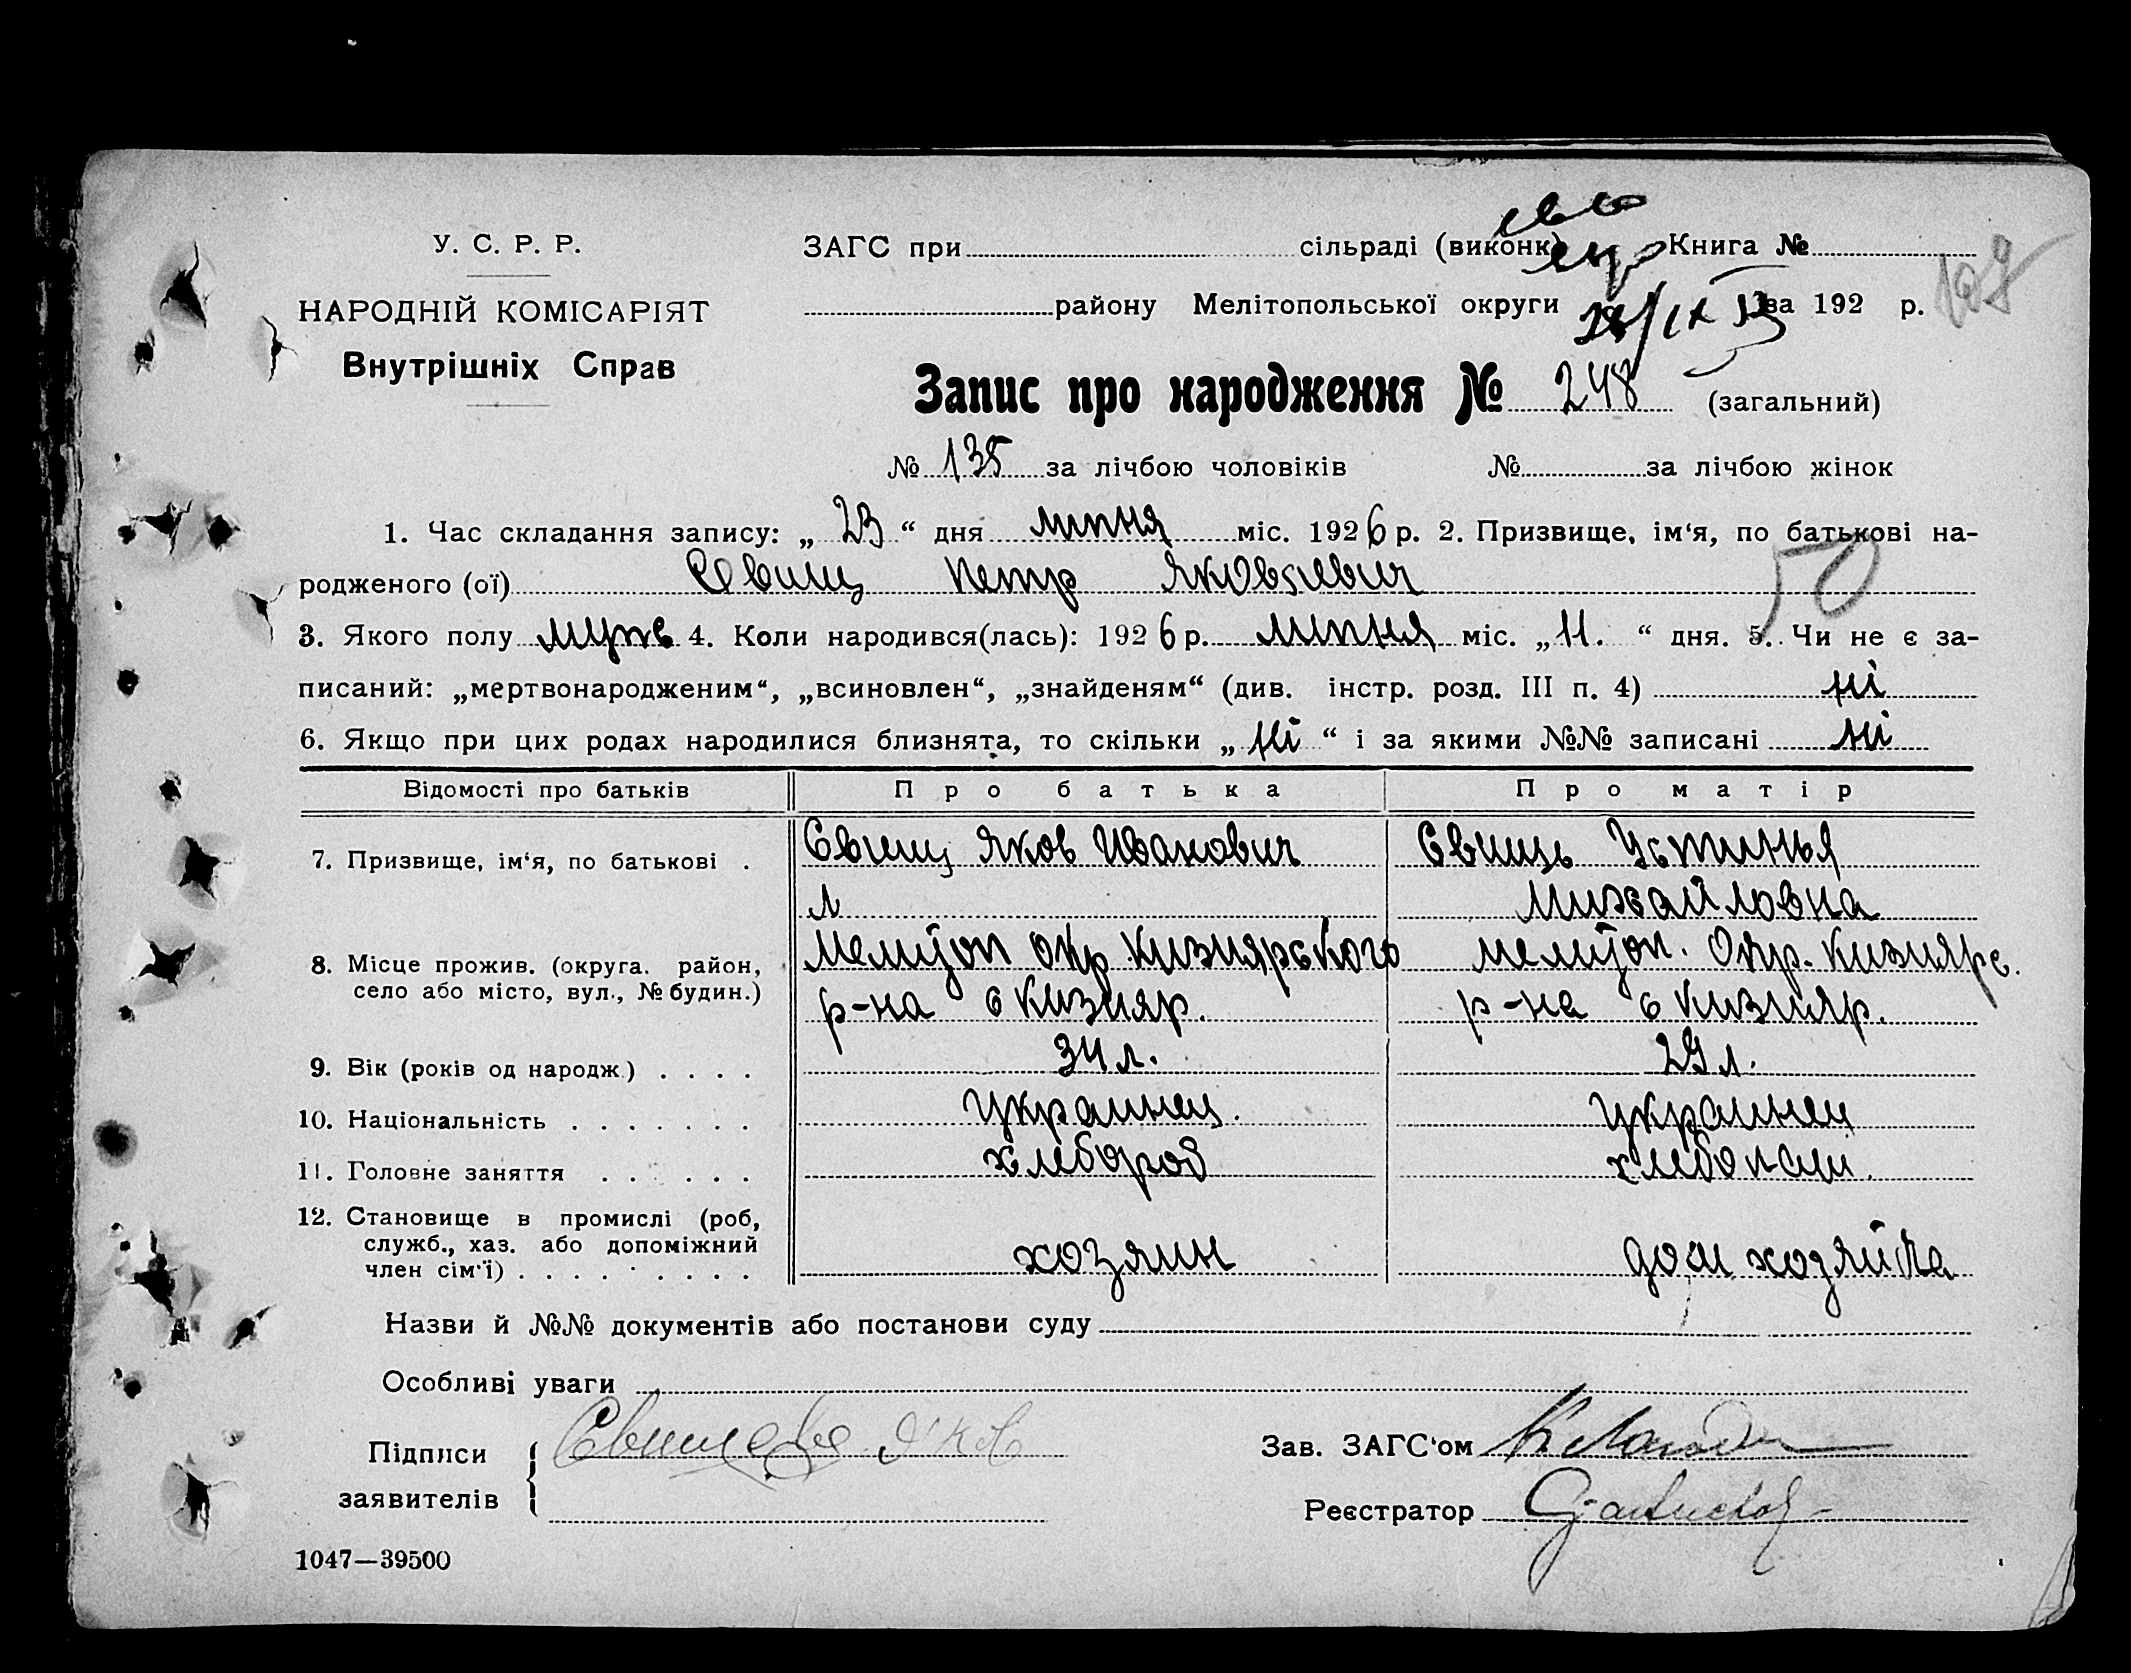 У. С. Р. Р.
НАРОДНІЙ КОМІСАРІЯТ
Внутрішніх Справ
ЗАГС при сільраді (виконк) Книга №
району Мелітопольської округи за 192 р.
Запис про народження № 248 (загальний)
№ 135 за лічбою чоловіків № за лічбою жінок
1. Час складання запису: „ 23 “ дня липня міс. 1926 р. 2. Призвище, ім‘я, по батькові на-
родженого (ої) Євишц Петр Яковлевич
50
3. Якого полу муже 4. Коли народився(лась): 1926 р. липня міс. „ 11. “ дня. 5. Чи не є за-
писаний: „мертвонародженим“, „всиновлен“, „знайденям“ (див. інстр. розд. III п. 4) ні
6. Якщо при цих родах народилися близнята, то скільки „ ні “ і за якими №№ записані ні
Відомості про батьків Про батька Про матір
7. Призвище, ім‘я, по батькові . Євишц Яков Иванович Євишць Устинья
Михайловна
8. Місце прожив. (округа. район, село або місто, вул., № будин.) Мелитоп окр Кизиярского Мелитоп. Окр. Кизиярс.
р-на с Кизияр. р-на с Кизияр.
9. Вік (років од народж.) . . . . 34 л. 29 л.
10. Національність . . . . . . . украинец. украинец
11. Головне заняття . . . . . . хлебороб хлебопаш.
12. Становище в промислі (роб, служб., хаз. або допоміжний член сім‘ї) . . . . . . . . . хозяин дом хозяйка
Назви й №№ документів або постанови суду
Особливі уваги
Підписи
заявителів
Зав. ЗАГС‘ом
Реєстратор
1047—39500